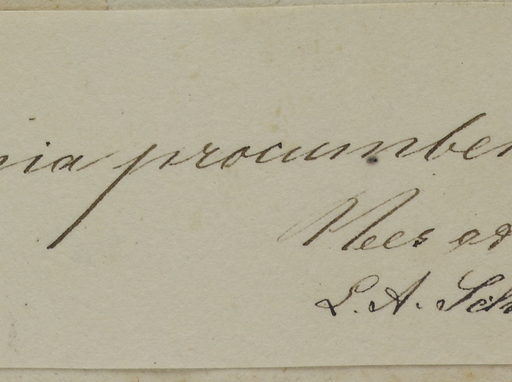 nia procumben
Nees ad
L. A. Sch